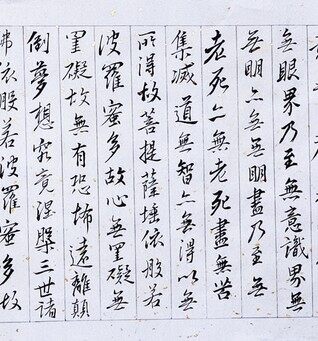 無眼界乃至無意識界無
無明亦無無明盡乃至無
老死亦無老死盡無苦
集滅道無智亦無得以無
所得故菩提薩埵依般若
波羅蜜多故心無罣礙無
罣礙故無有恐怖遠離顛
倒夢想究竟涅槃三世諸
佛依般若波羅蜜多故